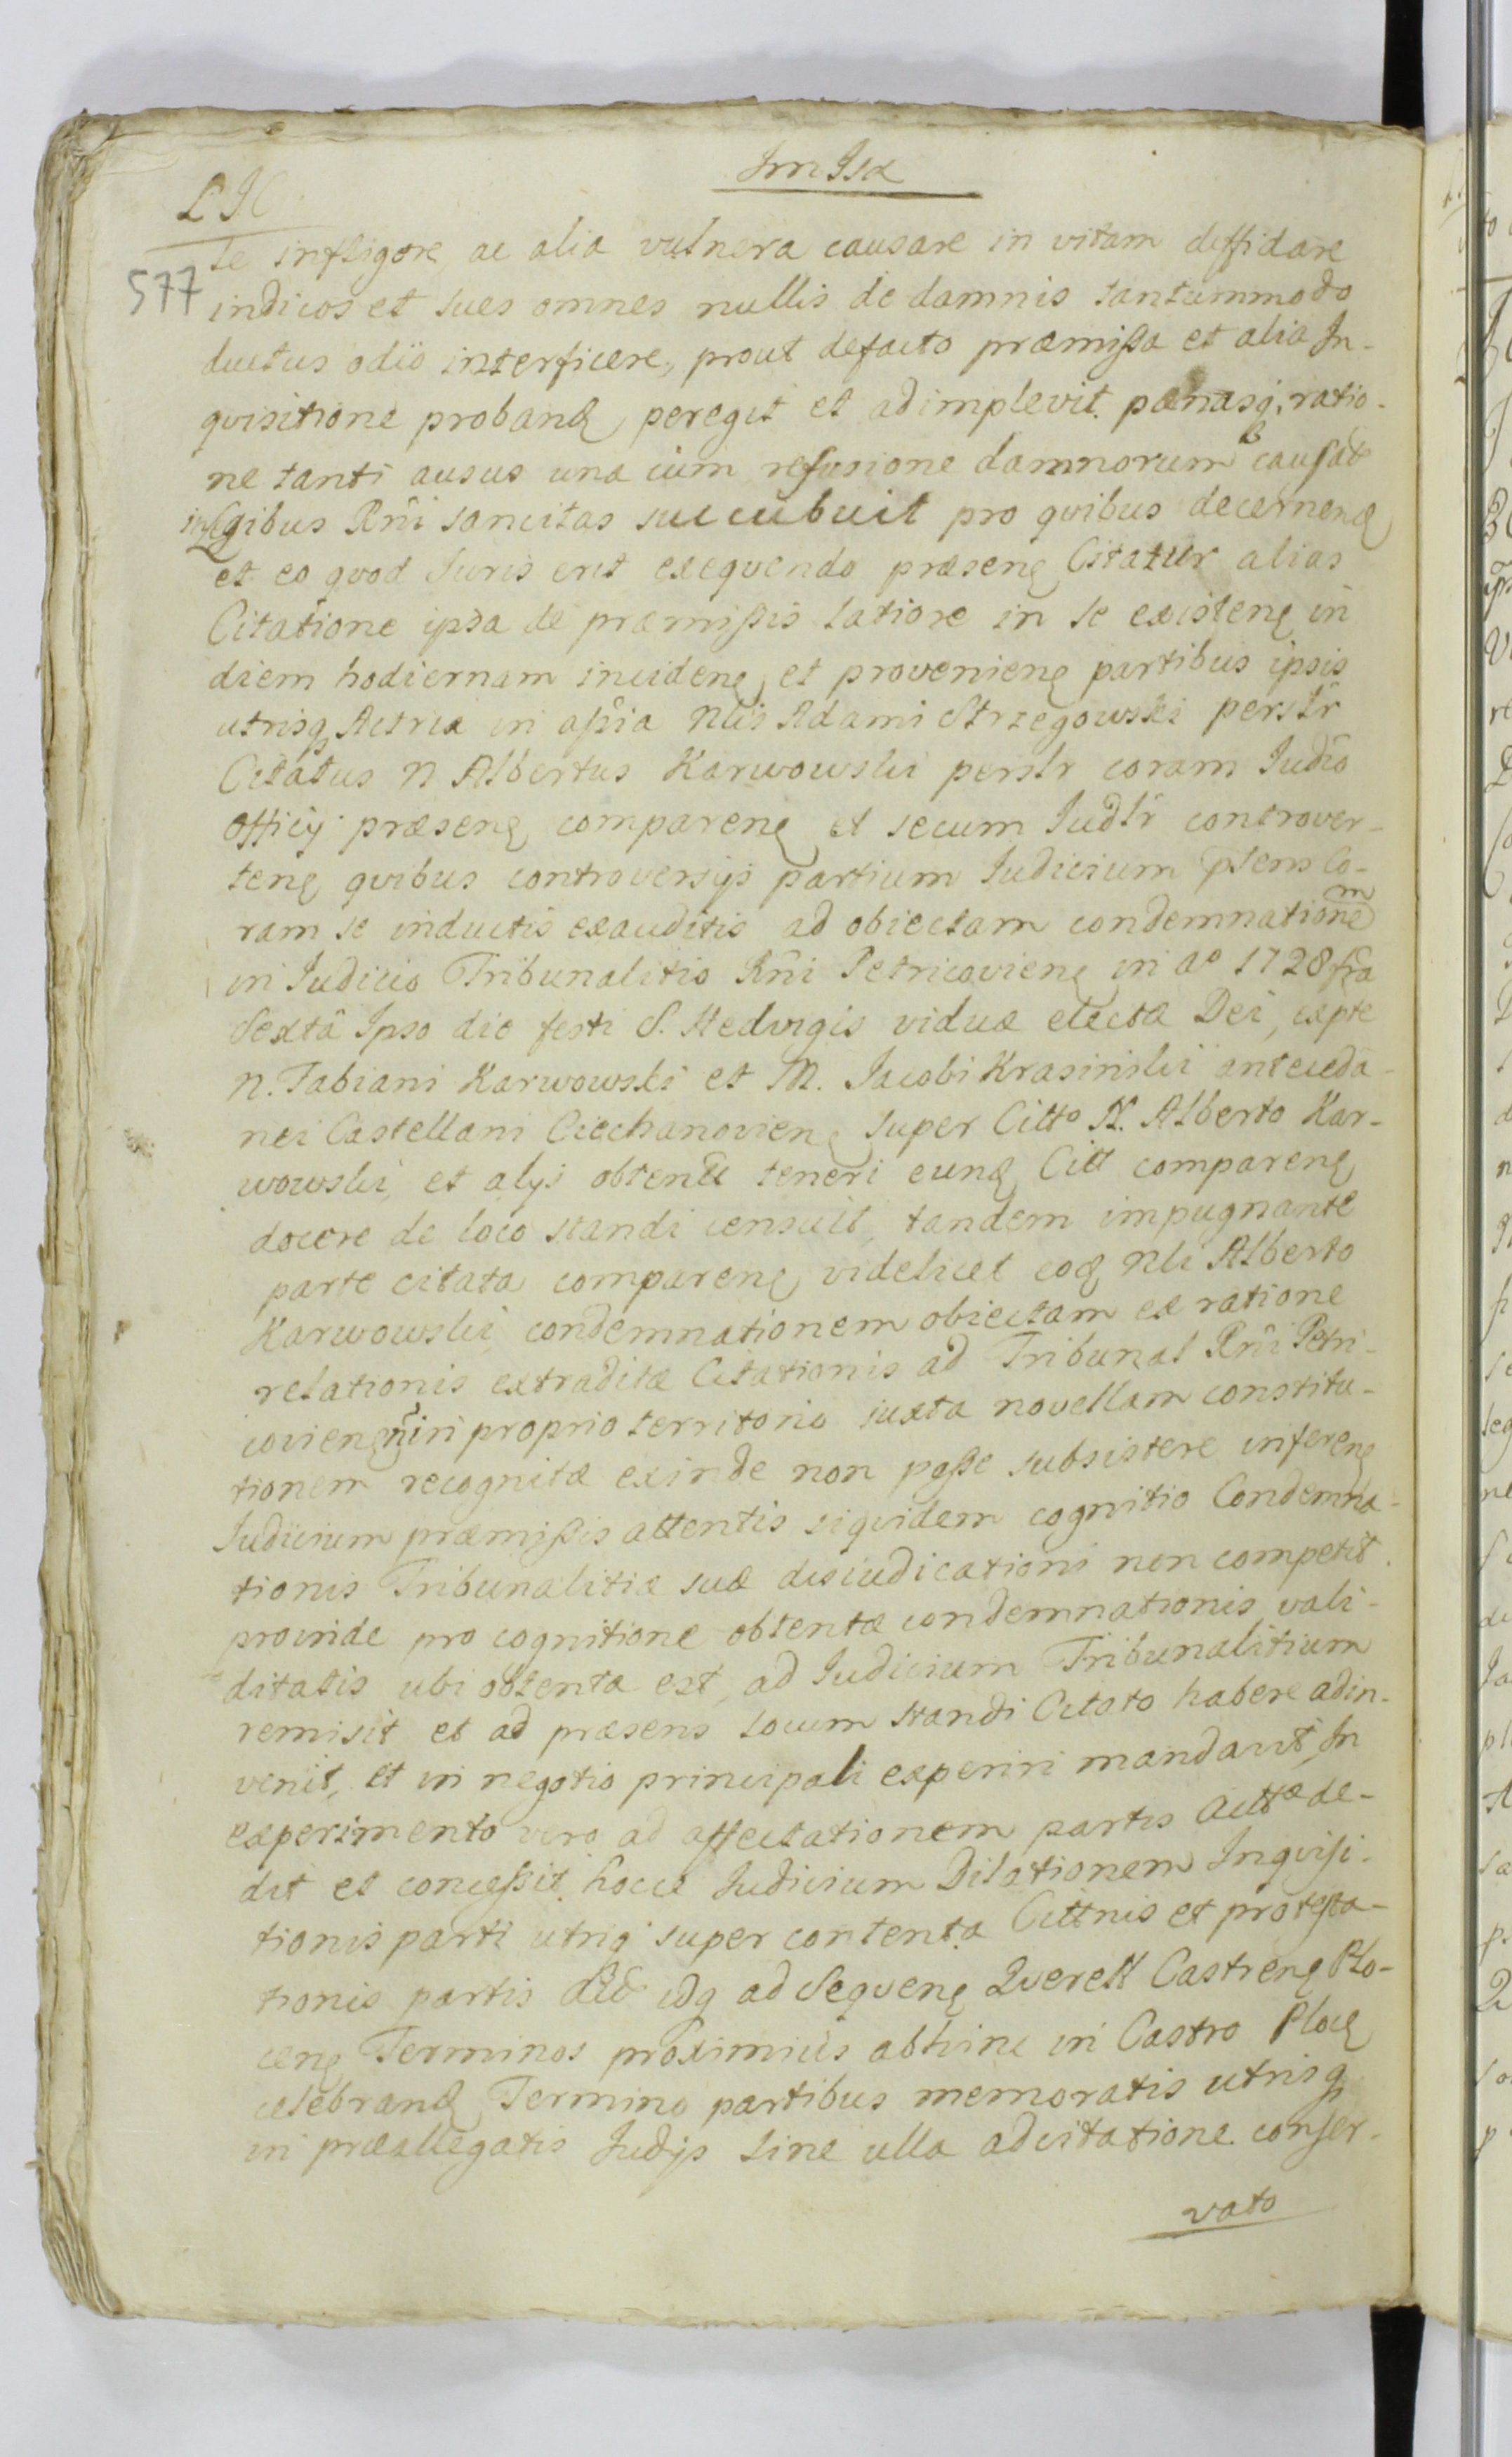 L H
577
te infligere, ac alia vulnera causare in vitam diffidare
indicos et sues omnes nullis de damnis tantummodo
ductus odio interficere, prout defacto præmissa et alia In-
quisitione proband peregit et adimplevit. pœnasq, ratio-
ne tanti ausus una cum refusione damnorum causat
in legibus Rñi sancitas succubuit pro quibus decernend
et eo quod Iuris erit exequendo præsenę Citatur alias
Citatione ipsa de præmissis latiore in se existenę in
diem hodiernam incidenę et provenienę partibus ipsis
utrisq Actrix in assia Nlis Adami Strzegowski persłr
Citatus N Albertus Karwowski persłr coram Iudio
Officij præsenę comparenę et secum Iudłr controver-
tenę quibus controversijs partium Iudicium ptens Co-
ram se inductis exauditis ad obiectam condemnationem
in Iudicio Tribunalitio Rñi Petricovienę in ao 1728 fra
Sexta Ipso die festi S. Hedvigis viduæ electæ Dei, expte
N. Fabiani Karwowski et M. Jacobi Krasinski anteceda-
nei Castellani Ciechanovienę super Citto N. Alberto Kar-
wowski, et alijs obtenta teneri eund Citt comparenę
docere de loco standi censuit, tandem impugnante
parte citata comparenę videlicet eod Nli Alberto
Karwowski condemnationem obiectam ex ratione
relationis extraditæ Citationis ad Tribunal Rñi Petri-
covienę ñ in proprio territorio iuxta novellam constitu-
tionem recognitæ exinde non posse subsistere inferenę
Iudicium præmissis attentis siquidem cognitio Condemna-
tionis Tribunalitiæ suæ disiudicationi non competit.
proinde pro cognitione obtentæ condemnationis vali-
ditatis ubi obtenta est, ad Iudicium Tribunalitium
remisit et ad præsens locum standi Citato habere adin-
venit, et in negotio principali experiri mandavit, In
experimento vero ad affectationem partis Acttæ de-
dit et concessit hocce Iudicium Dilationem Inquisi-
tionis parti utriq super contenta Cittnis et protesta-
tionis partis idq ad Sequenę Querell Castrenę Plo-
cenę Terminos proximius abhinc in Castro Plocę
celebrand Termino partibus memoratis utrisq
in præallegatis Iudijs sine ulla adcitatione conser-
vato